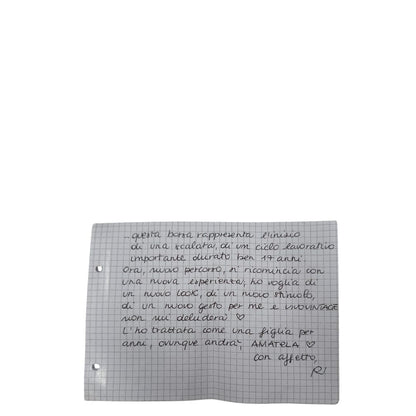 ...questa borsa rappresenta l'inizio
di una scalata, di un ciclo lavorativo
importante durato ben 17 anni.
Ora, nuovo percorso, si ricomincia con
una nuova esperienza, ho voglia di
un nuovo look, di un nuovo stimolo,
di un nuovo gesto per me e VIVOVINTAGE
non mi deluderà ♡
L'ho trattata come una figlia per
anni, ovunque andrà, AMATELA ♡
con affetto,